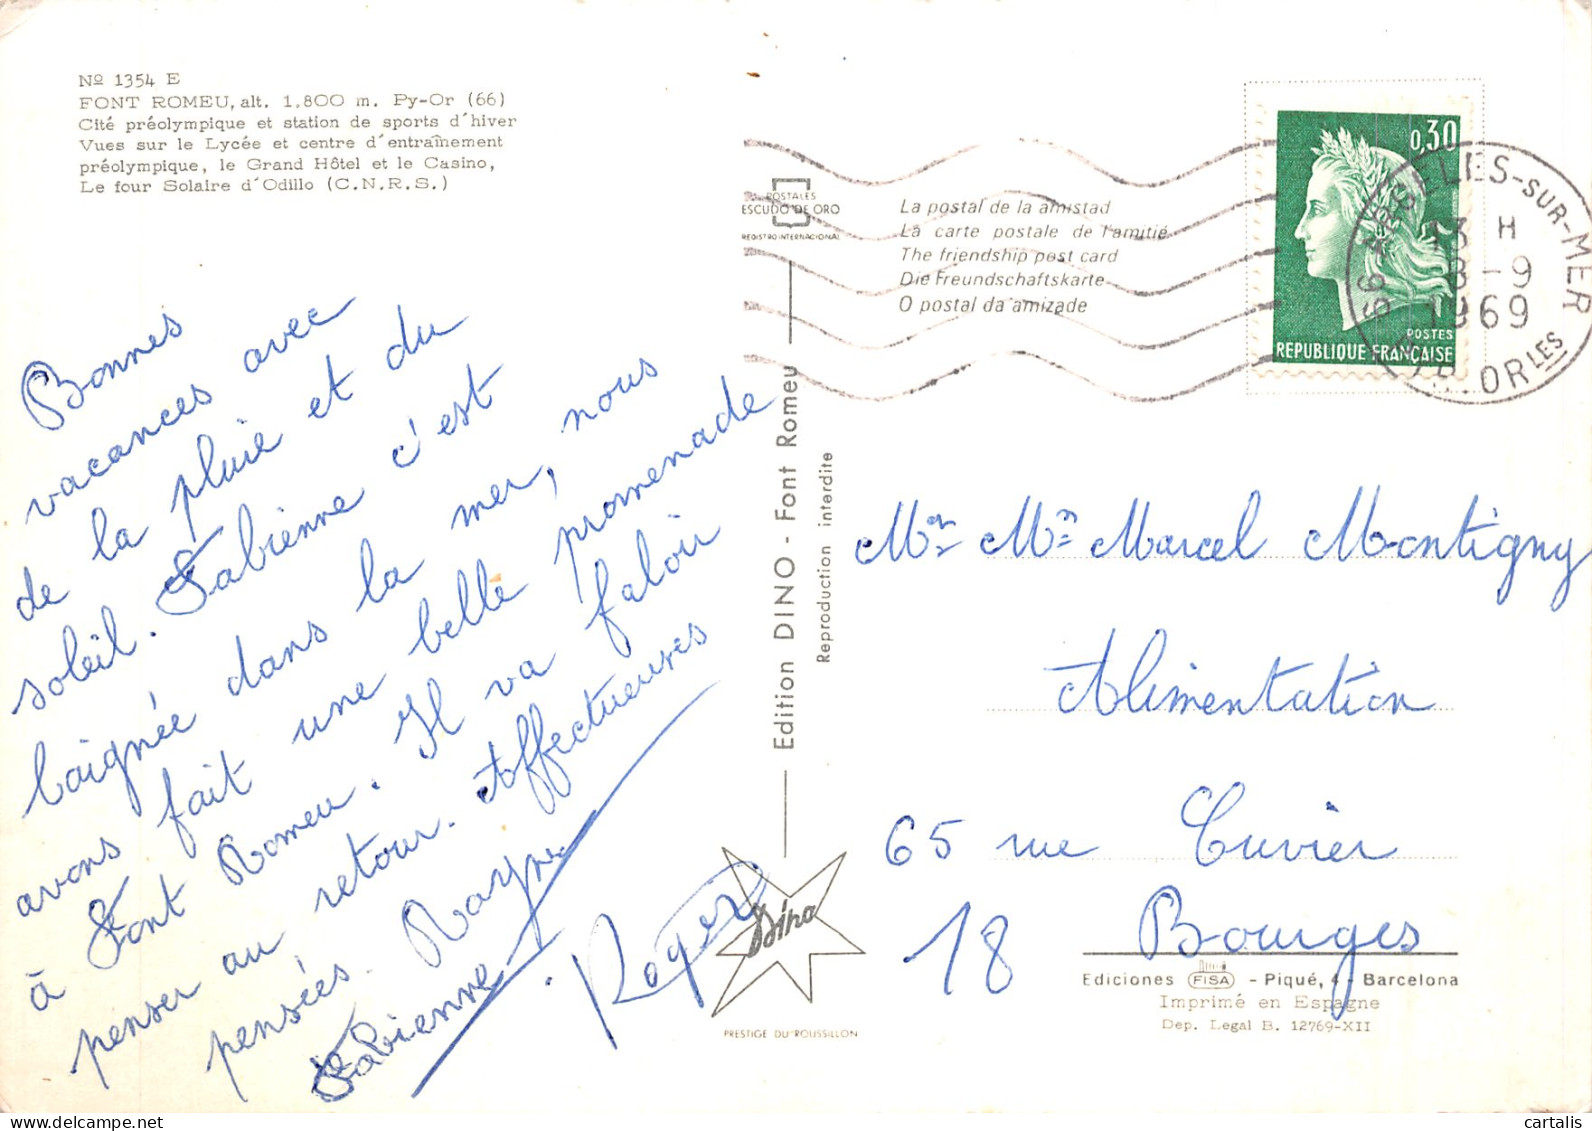 Nº 1354 E
FONT ROMEU, alt. 1.800 m. Py-Or (66)
Cité préolympique et station de sports d'hiver
Vues sur le Lycée et centre d'entraînement
préolympique, le Grand Hôtel et le Casino,
Le four Solaire d'Odillo (C.N.R.S.)
Bonnes
vacances avec
de la pluie et du
soleil. Fabienne c'est
baignée dans la mer, nous
avons fait une belle promenade
à Font Romeu. Il va faloir
penser au retour. Affectueuses
pensées.
Fabienne
Roger
POSTALES
ESCUDO DE ORO
REGISTRO INTERNACIONAL
La postal de la amistad
La carte postale de l'amitié
The friendship post card
Die Freundschaftskarte
O postal da amizade
Edition DINO - Font Romeu
Reproduction interdite
Dino
PRESTIGE DU ROUSSILLON
0,30
POSTES
REPUBLIQUE FRANÇAISE
66 ARGELES-SUR-MER
13 H
8-9
1969
ORLES
Mr Mme Marcel Montigny
Alimentation
65 rue Cuvier
18 Bourges
Ediciones FISA - Piqué, 4 - Barcelona
Imprimé en Espagne
Dep. Legal B. 12769-XII
cartalis